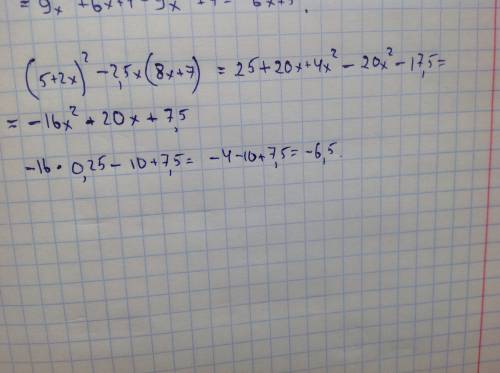 = 9x² + 6x + 4 - 9x² + 4 = 6x + 5.
(5+2x)² - 2,5x(8x+7) = 25 + 20x + 4x² - 20x² - 17,5 =
= -16x² + 20x + 7,5
-16 · 0,25 - 10 + 7,5 = -4 - 10 + 7,5 = -6,5.